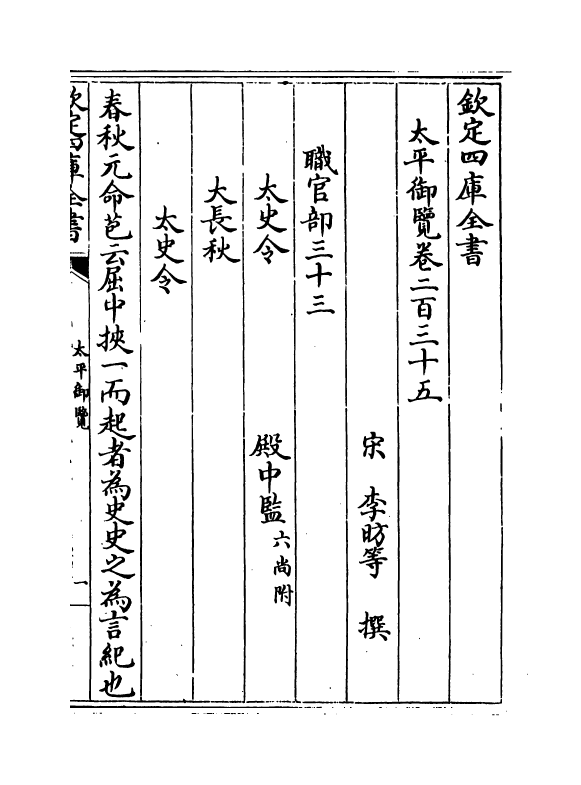 欽定四庫全書
太平御覽卷二百三十五
宋 李昉等 撰
職官部三十三
太史令 殿中監六尚附
大長秋
太史令
春秋元命苞云屈中挾一而起者為史史之為言紀也
欽定四庫全書 太平御覽 一